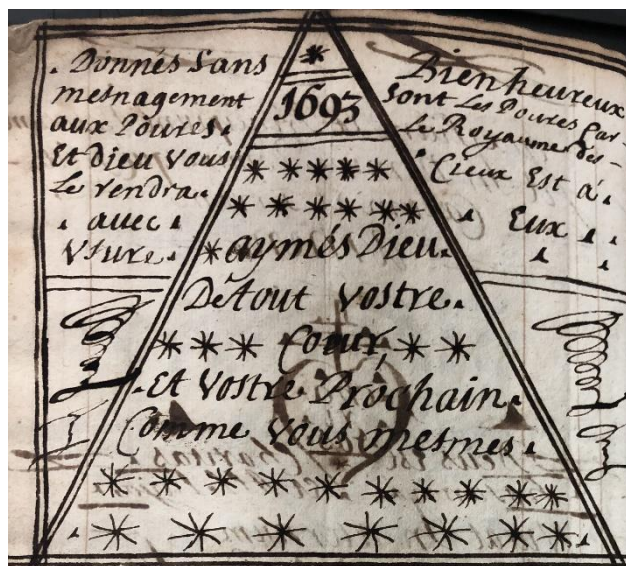 Donnés Sans
mesnagement
aux Poures
Et dieu vous
Le rendra
avec
Vsure
Bienheureux
Sont Les Poures Car
Le Royaume des
Cieux Est a
Eux
1693
aymés Dieu
De tout vostre
Coeur,
Et Vostre Prochain
Comme vous mesmes